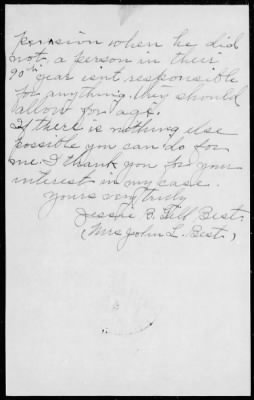 pension when he did
not a person in their
90th year isnt responsible
for anything. they should
allow for age.
If there is nothing else
possible you can do for
me. I thank you for your
interest in my case.
Yours very truly
Jessie B. Fell Best.
(Mrs John L. Best.)